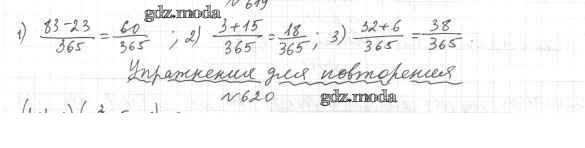 №619
1) 83-23/365 = 60/365 ; 2) 3+15/365 = 18/365 ; 3) 32+6/365 = 38/365 .
gdz.moda
Упражнения для повторения
№620
gdz.moda